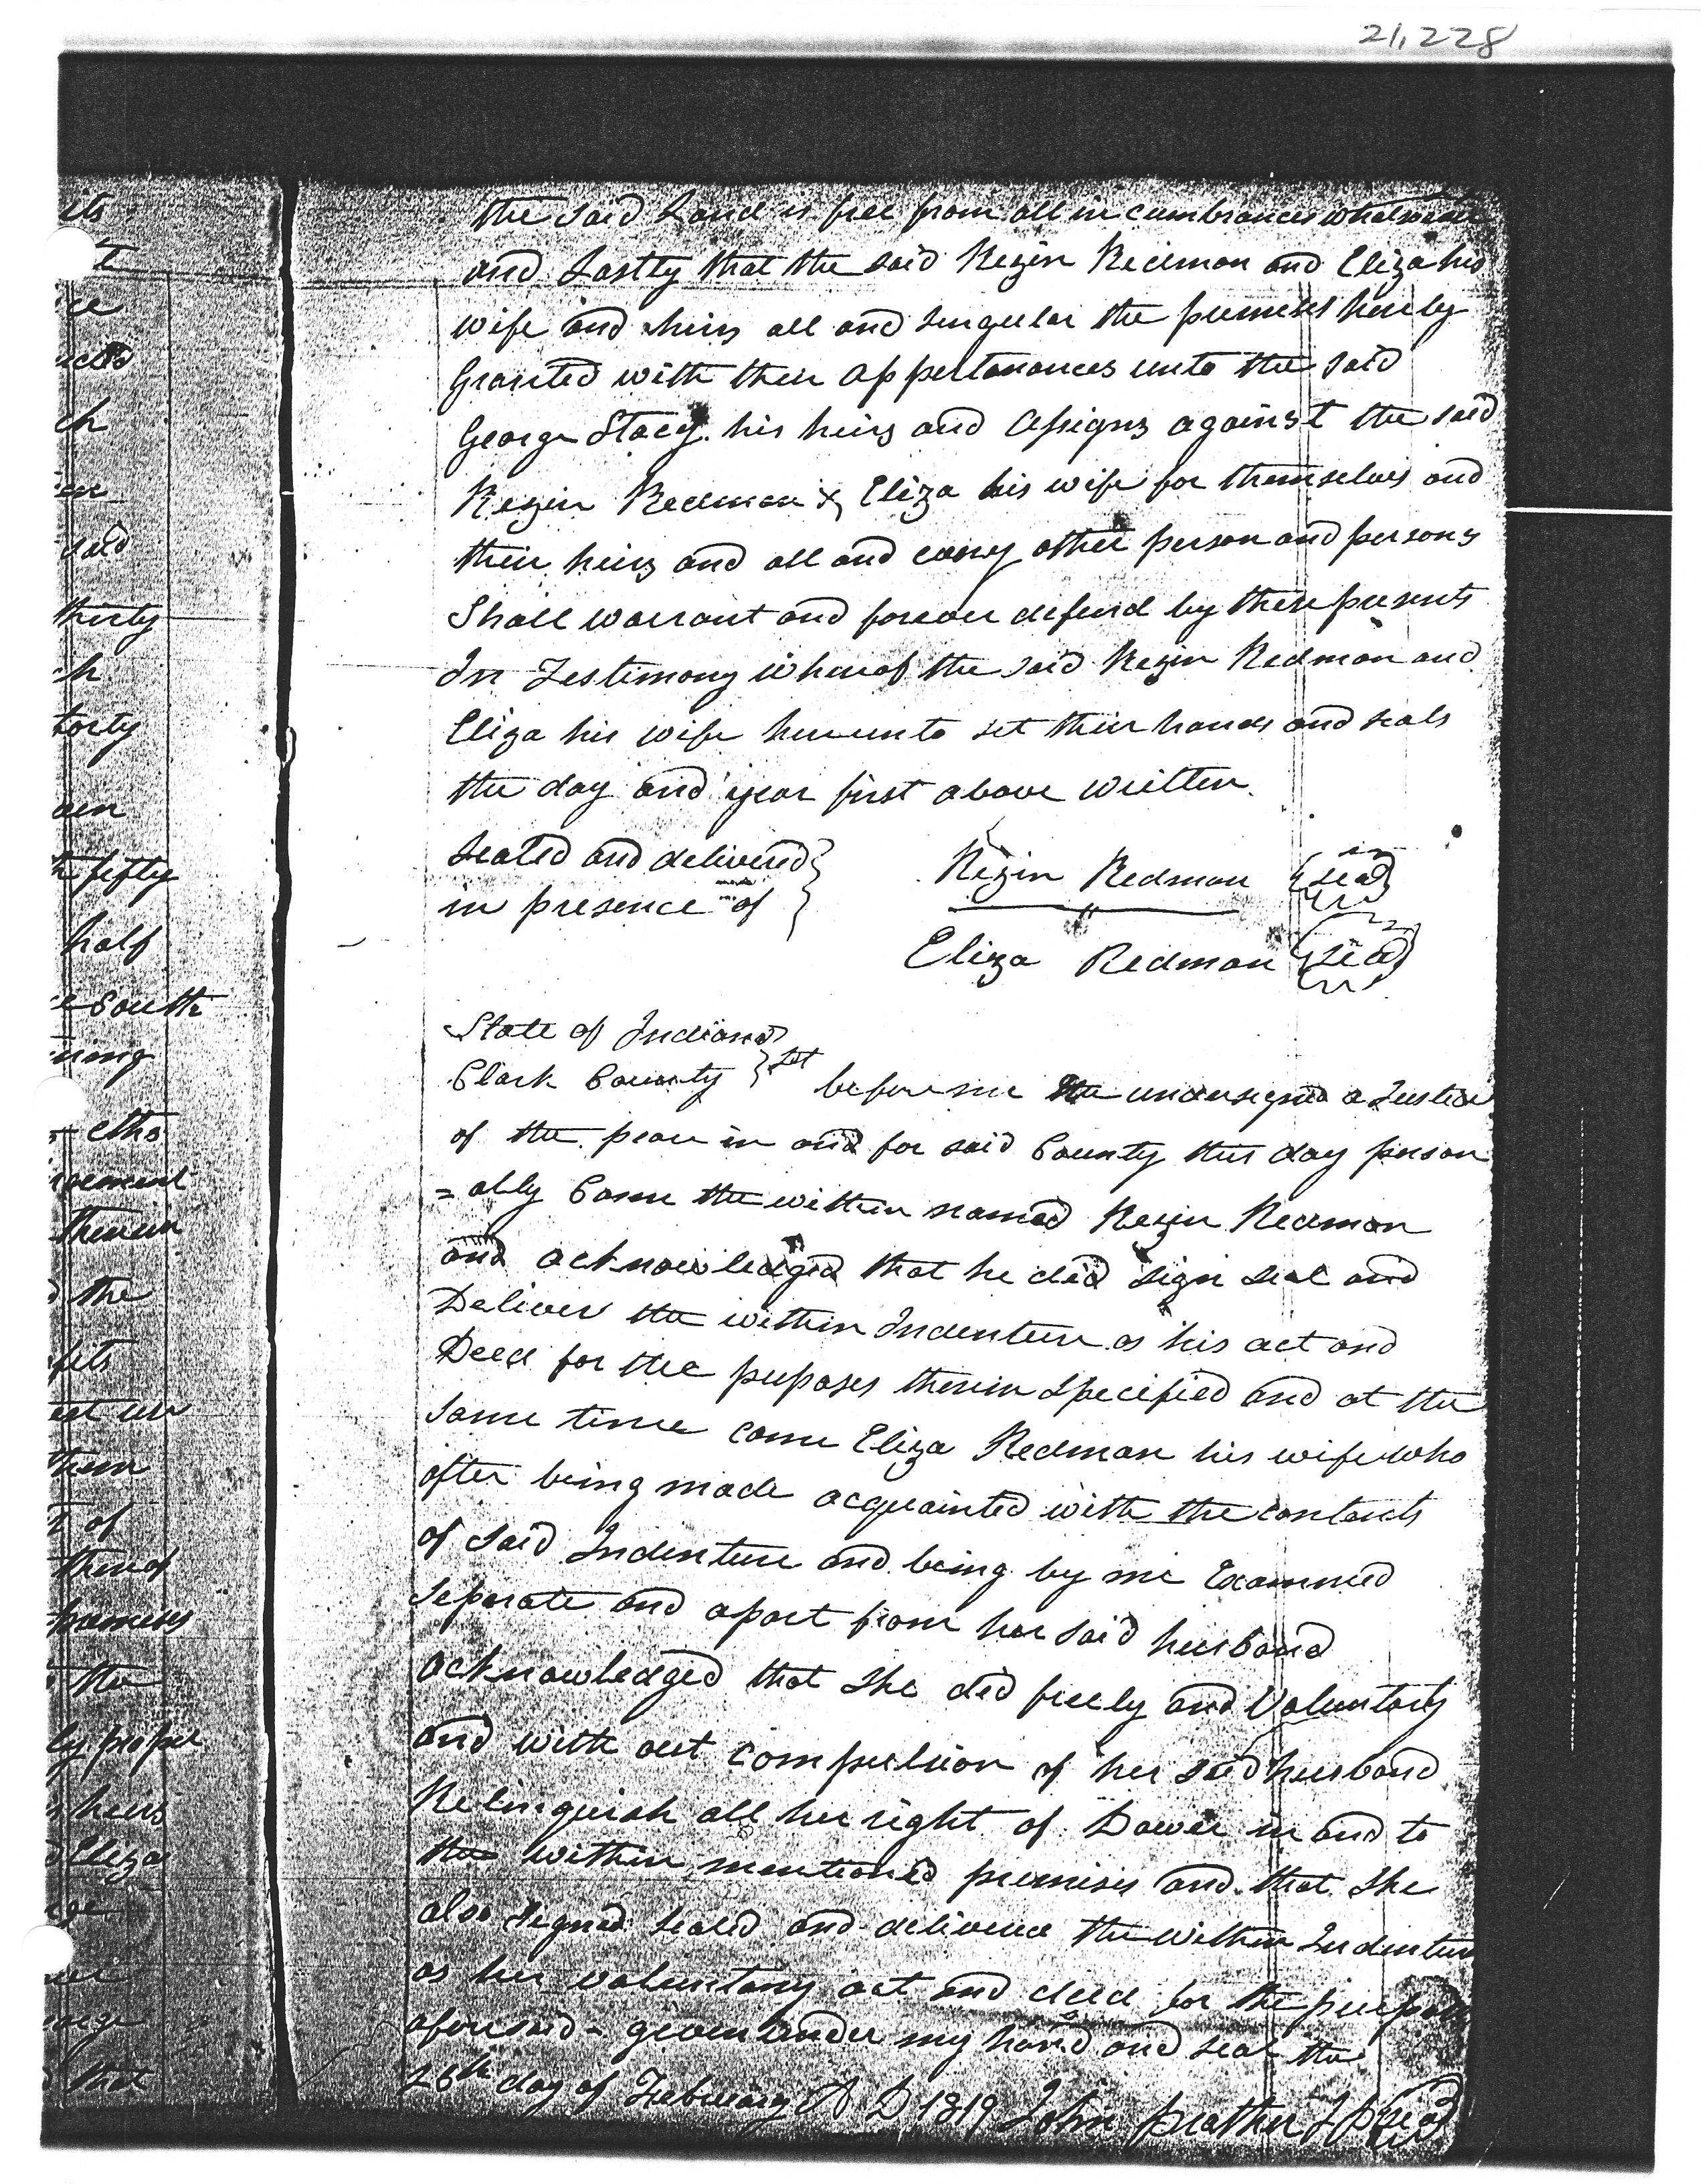 21,228
its
t
ce
ch
said
thirty
h
forty
fifty
half
South
ning
eths
the
fits
them
of
thereof
premises
the
ly proper
heirs
Eliza
that
the said Land is free from all in cumbrances whatsoever
and Lastly that the said Rezin Redman and Eliza his
wife and heirs all and singular the premises hereby
Granted with their appertanances unto the said
George Stacy his heirs and Assigns against the said
Rezin Redman & Eliza his wife for themselves and
their heirs and all and every other person and persons
Shall warrant and forever defend by these presents
In Testimony whereof the said Rezin Redman and
Eliza his wife hereunto set their hands and seals
the day and year first above written.
Sealed and delivered
in presence of
Rezin Redman seal
Eliza Redman seal
State of Indiana
Clark County Sct before me the undersigned a Justice
of the peace in and for said County this day person
=ally Came the within named Rezin Redman
and acknowledged that he did sign seal and
Deliver the within Indenture as his act and
Deed for the purposes therein Specified and at the
same time came Eliza Redman his wife who
after being made acquainted with the contents
of said Indenture and being by me Examined
Seperate and apart from her said husband
acknowledged that She did freely and Voluntary
and with out compulsion of her said husband
Relinquish all her right of Dower in and to
the within mentioned premises and that She
also signed sealed and delivered the within Indenture
as her voluntary act and deed for the purposes
aforesaid - given under my hand and seal the
26th day of February A D 1819 John Prather J P seal